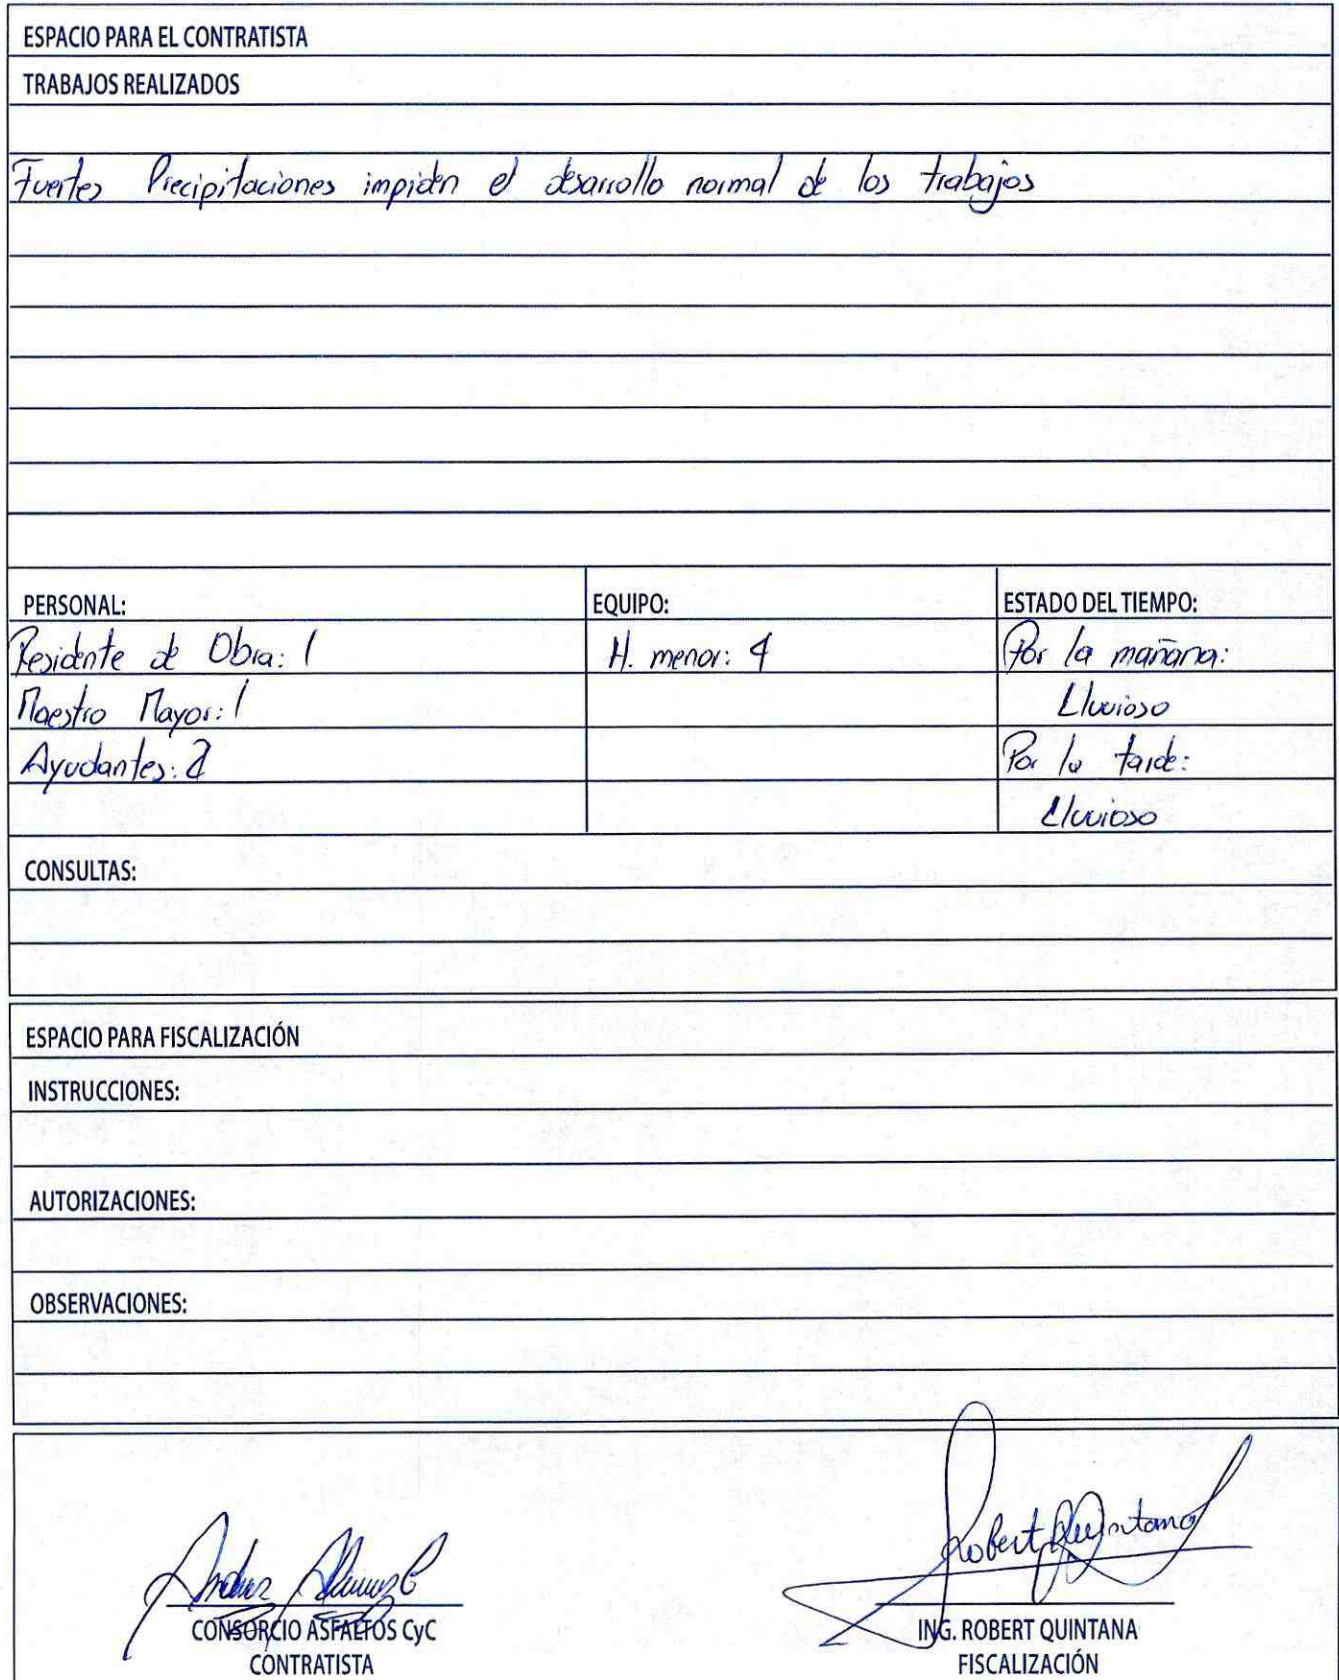 ESPACIO PARA EL CONTRATISTA
TRABAJOS REALIZADOS
Fuertes Precipitaciones impiden el desarrollo normal de los trabajos
PERSONAL: EQUIPO: ESTADO DEL TIEMPO:
Residente de Obra: 1 H. menor: 4 Por la mañana:
Maestro Mayor: 1 Lluvioso
Ayudantes: 2 Por la tarde:
Lluvioso
CONSULTAS:
ESPACIO PARA FISCALIZACIÓN
INSTRUCCIONES:
AUTORIZACIONES:
OBSERVACIONES:
Robert Quintana
CONSORCIO ASFALTOS CyC ING. ROBERT QUINTANA
CONTRATISTA FISCALIZACIÓN